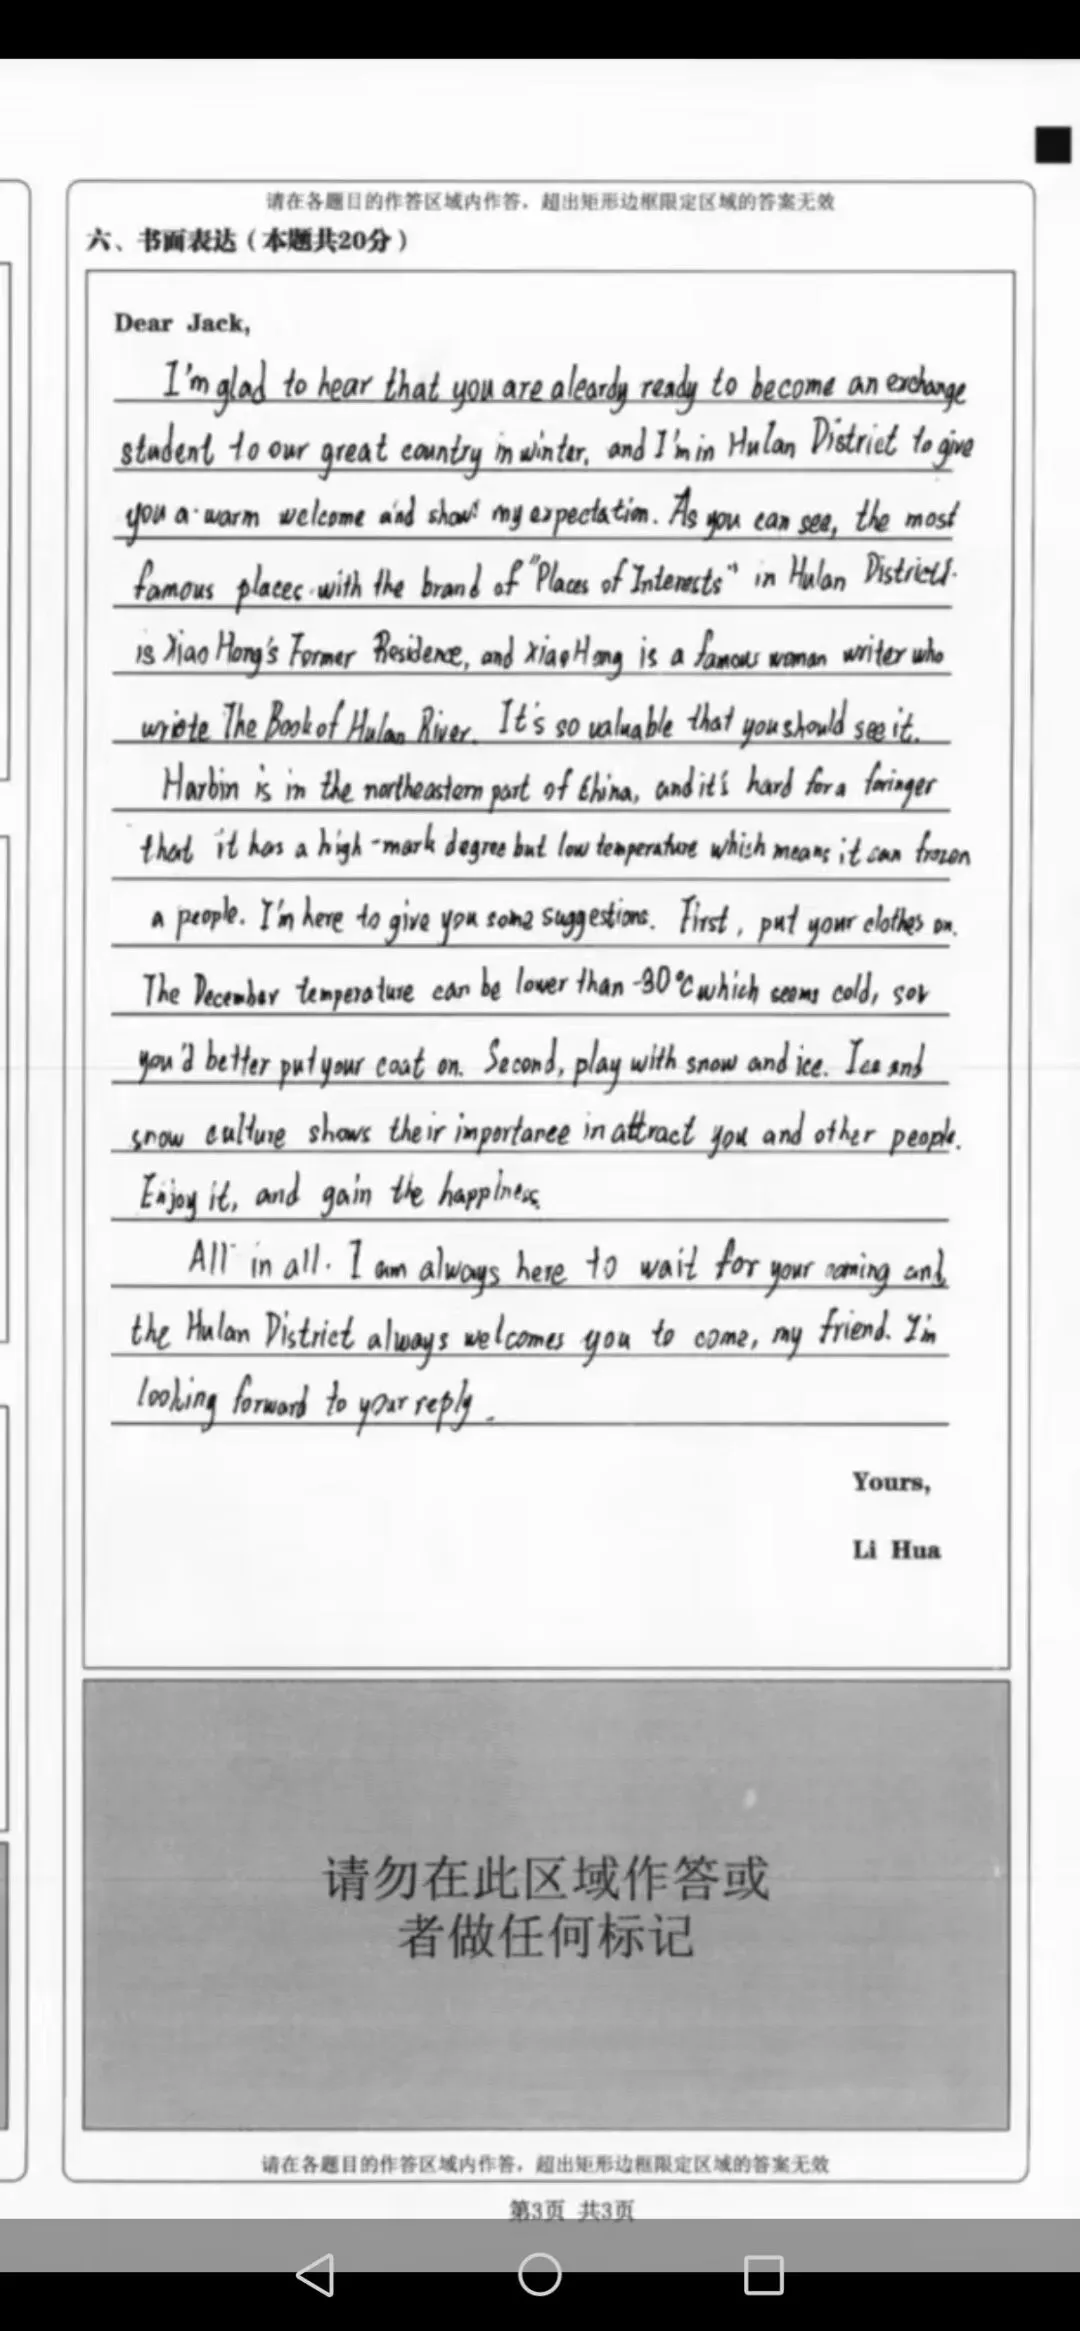 请在各题目的作答区域内作答，超出矩形边框限定区域的答案无效
六、书面表达（本题共20分）
Dear Jack,
I'm glad to hear that you are aleardy ready to become an exchange
student to our great country in winter, and I'm in Hulan District to give
you a warm welcome and show my expectation. As you can see, the most
famous places with the brand of "Places of Interests" in Hulan District
is Xiao Hong's Former Residence, and Xiao Hong is a famous woman writer who
wrote The Book of Hulan River. It's so valuable that you should see it.
Harbin is in the northeastern part of China, and it's hard for a foringer
that it has a high-mark degree but low temperature which means it can frozen
a people. I'm here to give you some suggestions. First, put your clothes on.
The December temperature can be lower than -30°C which seems cold, so
you'd better put your coat on. Second, play with snow and ice. Ice and
snow culture shows their importance in attract you and other people.
Enjoy it, and gain the happiness.
All in all. I am always here to wait for your coming and
the Hulan District always welcomes you to come, my friend. I'm
looking forward to your reply.
Yours,
Li Hua
请勿在此区域作答或
者做任何标记
请在各题目的作答区域内作答，超出矩形边框限定区域的答案无效
第3页 共3页